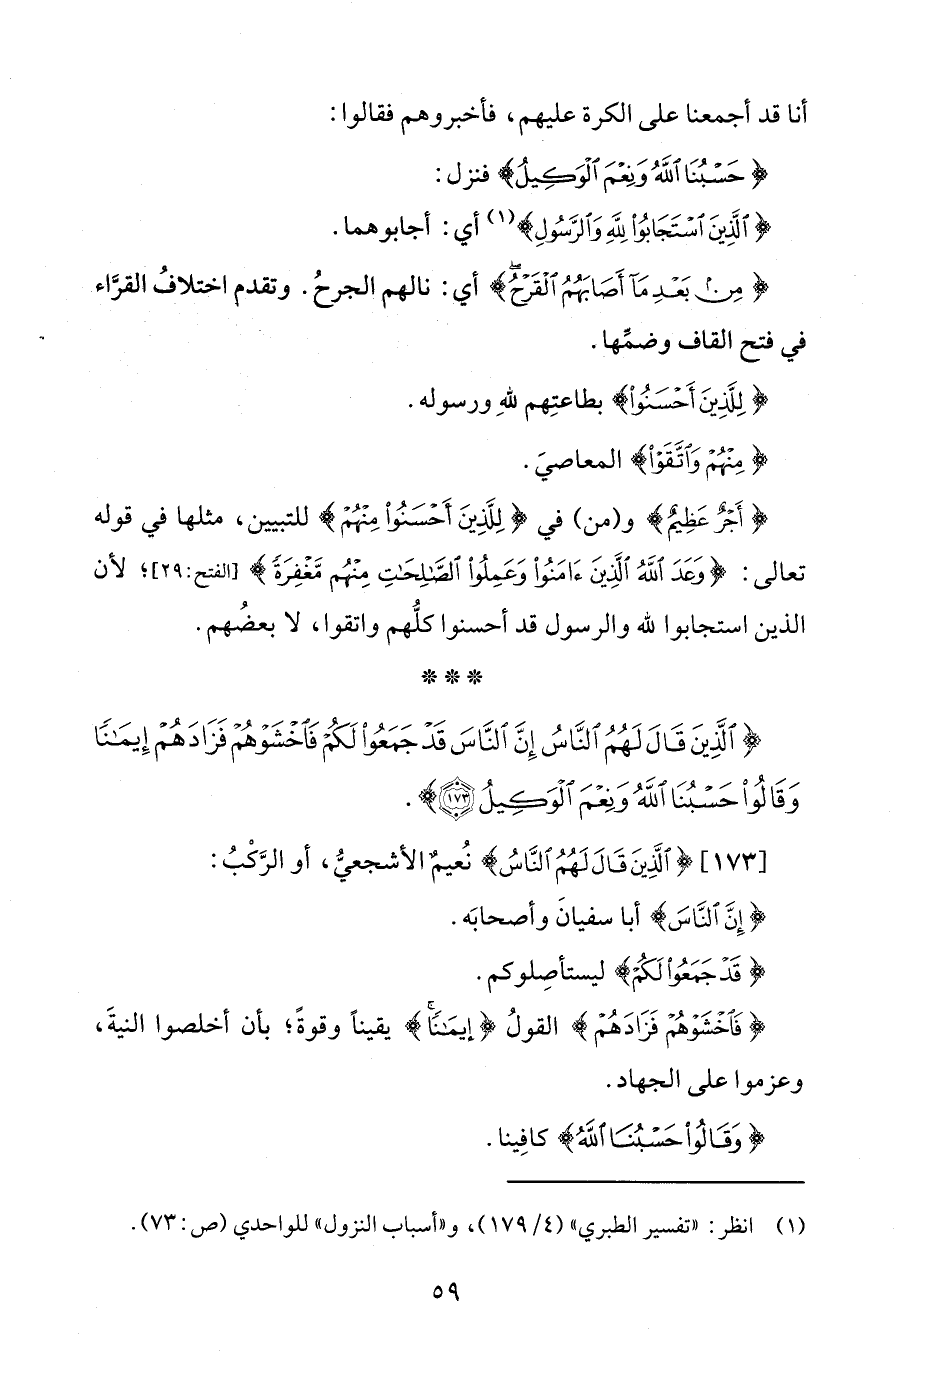 أنا قد أجمعنا على الكرة عليهم، فأخبروهم فقالوا:
﴿حَسْبُنَا ٱللَّهُ وَنِعْمَ ٱلْوَكِيلُ﴾ فنزل:
﴿ٱلَّذِينَ ٱسْتَجَابُوا۟ لِلَّهِ وَٱلرَّسُولِ﴾(١) أي: أجابوهما.
﴿مِنۢ بَعْدِ مَآ أَصَابَهُمُ ٱلْقَرْحُ ۖ﴾ أي: نالهم الجرحُ. وتقدم اختلافُ القرَّاء
في فتح القاف وضمِّها.
﴿لِلَّذِينَ أَحْسَنُوا۟﴾ بطاعتِهم للهِ ورسوله.
﴿مِنْهُمْ وَٱتَّقَوْا۟﴾ المعاصيَ.
﴿أَجْرٌ عَظِيمٌ﴾ و(من) في ﴿لِلَّذِينَ أَحْسَنُوا۟ مِنْهُمْ﴾ للتبيين، مثلها في قوله
تعالى: ﴿وَعَدَ ٱللَّهُ ٱلَّذِينَ ءَامَنُوا۟ وَعَمِلُوا۟ ٱلصَّٰلِحَٰتِ مِنْهُم مَّغْفِرَةً﴾ [الفتح: ٢٩]؛ لأن
الذين استجابوا لله والرسول قد أحسنوا كلُّهم واتقوا، لا بعضُهم.
* * *
﴿ٱلَّذِينَ قَالَ لَهُمُ ٱلنَّاسُ إِنَّ ٱلنَّاسَ قَدْ جَمَعُوا۟ لَكُمْ فَٱخْشَوْهُمْ فَزَادَهُمْ إِيمَٰنًا
وَقَالُوا۟ حَسْبُنَا ٱللَّهُ وَنِعْمَ ٱلْوَكِيلُ ١٧٣﴾.
[١٧٣] ﴿ٱلَّذِينَ قَالَ لَهُمُ ٱلنَّاسُ﴾ نُعيمٌ الأشجعيُّ، أو الرَّكْبُ:
﴿إِنَّ ٱلنَّاسَ﴾ أبا سفيانَ وأصحابَه.
﴿قَدْ جَمَعُوا۟ لَكُمْ﴾ ليستأصِلوكم.
﴿فَٱخْشَوْهُمْ فَزَادَهُمْ﴾ القولُ ﴿إِيمَٰنًا﴾ يقيناً وقوةً؛ بأن أخلصوا النيةَ،
وعزموا على الجهاد.
﴿وَقَالُوا۟ حَسْبُنَا ٱللَّهُ﴾ كافِينا.
(١) انظر: «تفسير الطبري» (٤/ ١٧٩)، و«أسباب النزول» للواحدي (ص: ٧٣).
٥٩